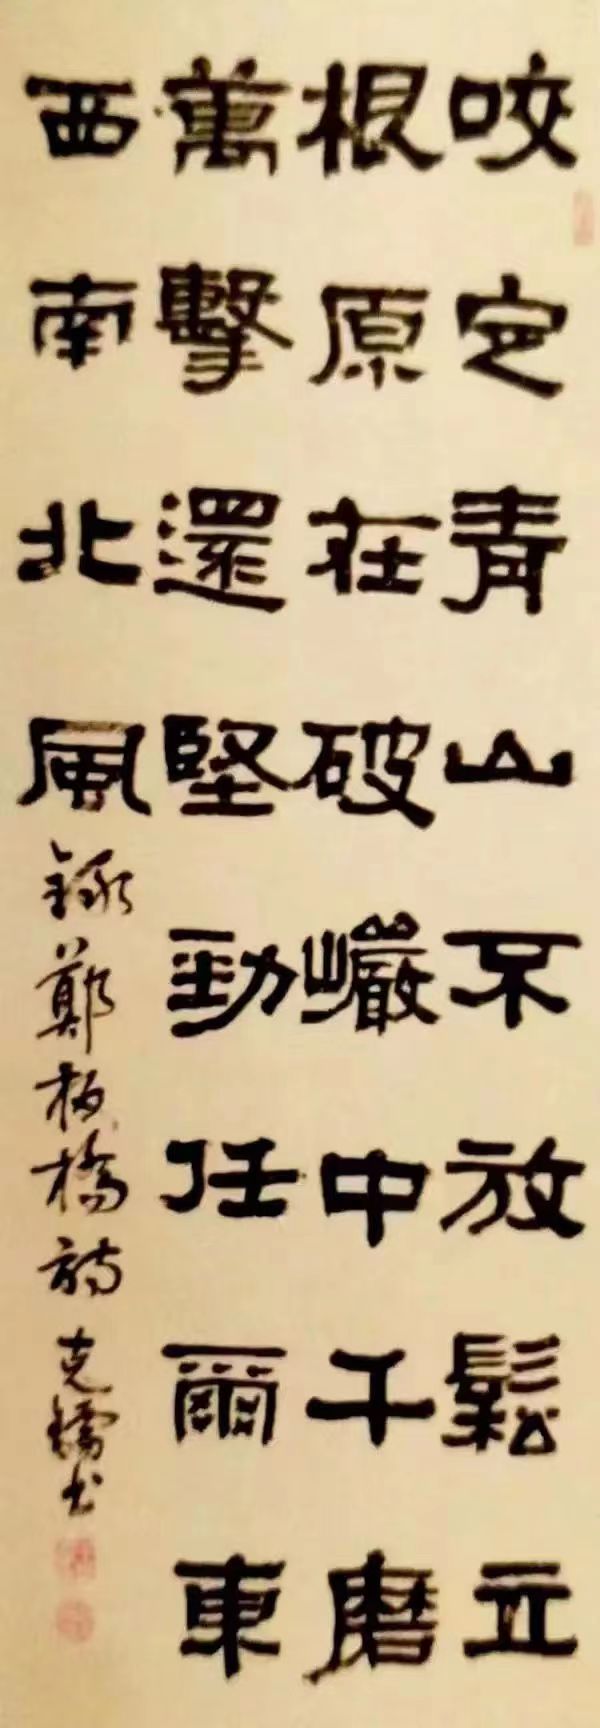 咬定青山不放鬆立
根原在破巖中千磨
萬擊還堅勁任爾東
西南北風
錄鄭板橋詩 克鏽书